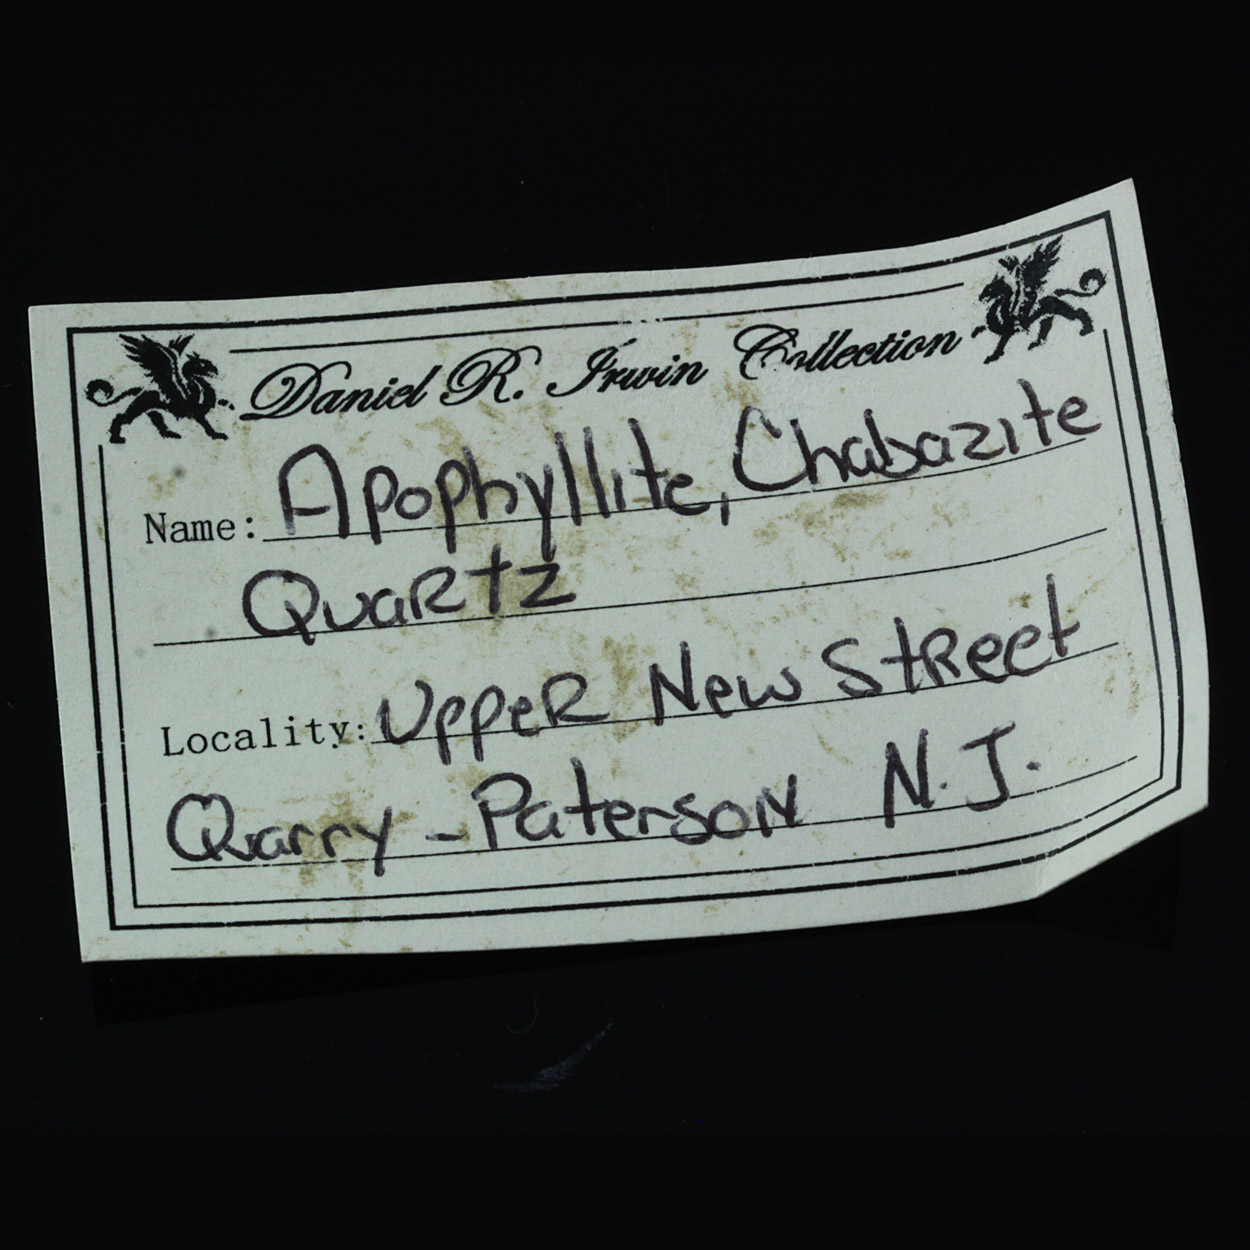 Daniel R. Irwin Collection
Name: Apophyllite, Chabazite
Quartz
Locality: Upper New Street
Quarry - Paterson N.J.